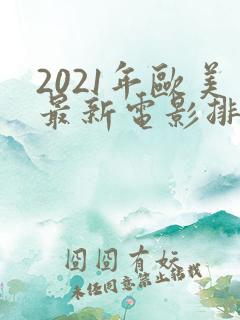 2021年歐美
最新電影排
囧囧有妖
未经同意禁止转载